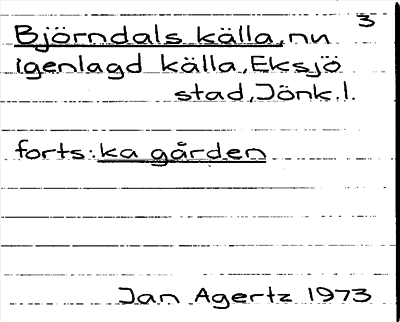 3
Björndals källa, nu
igenlagd källa, Eksjö
stad, Jönk.l.
forts: ka gården
Jan Agertz 1973